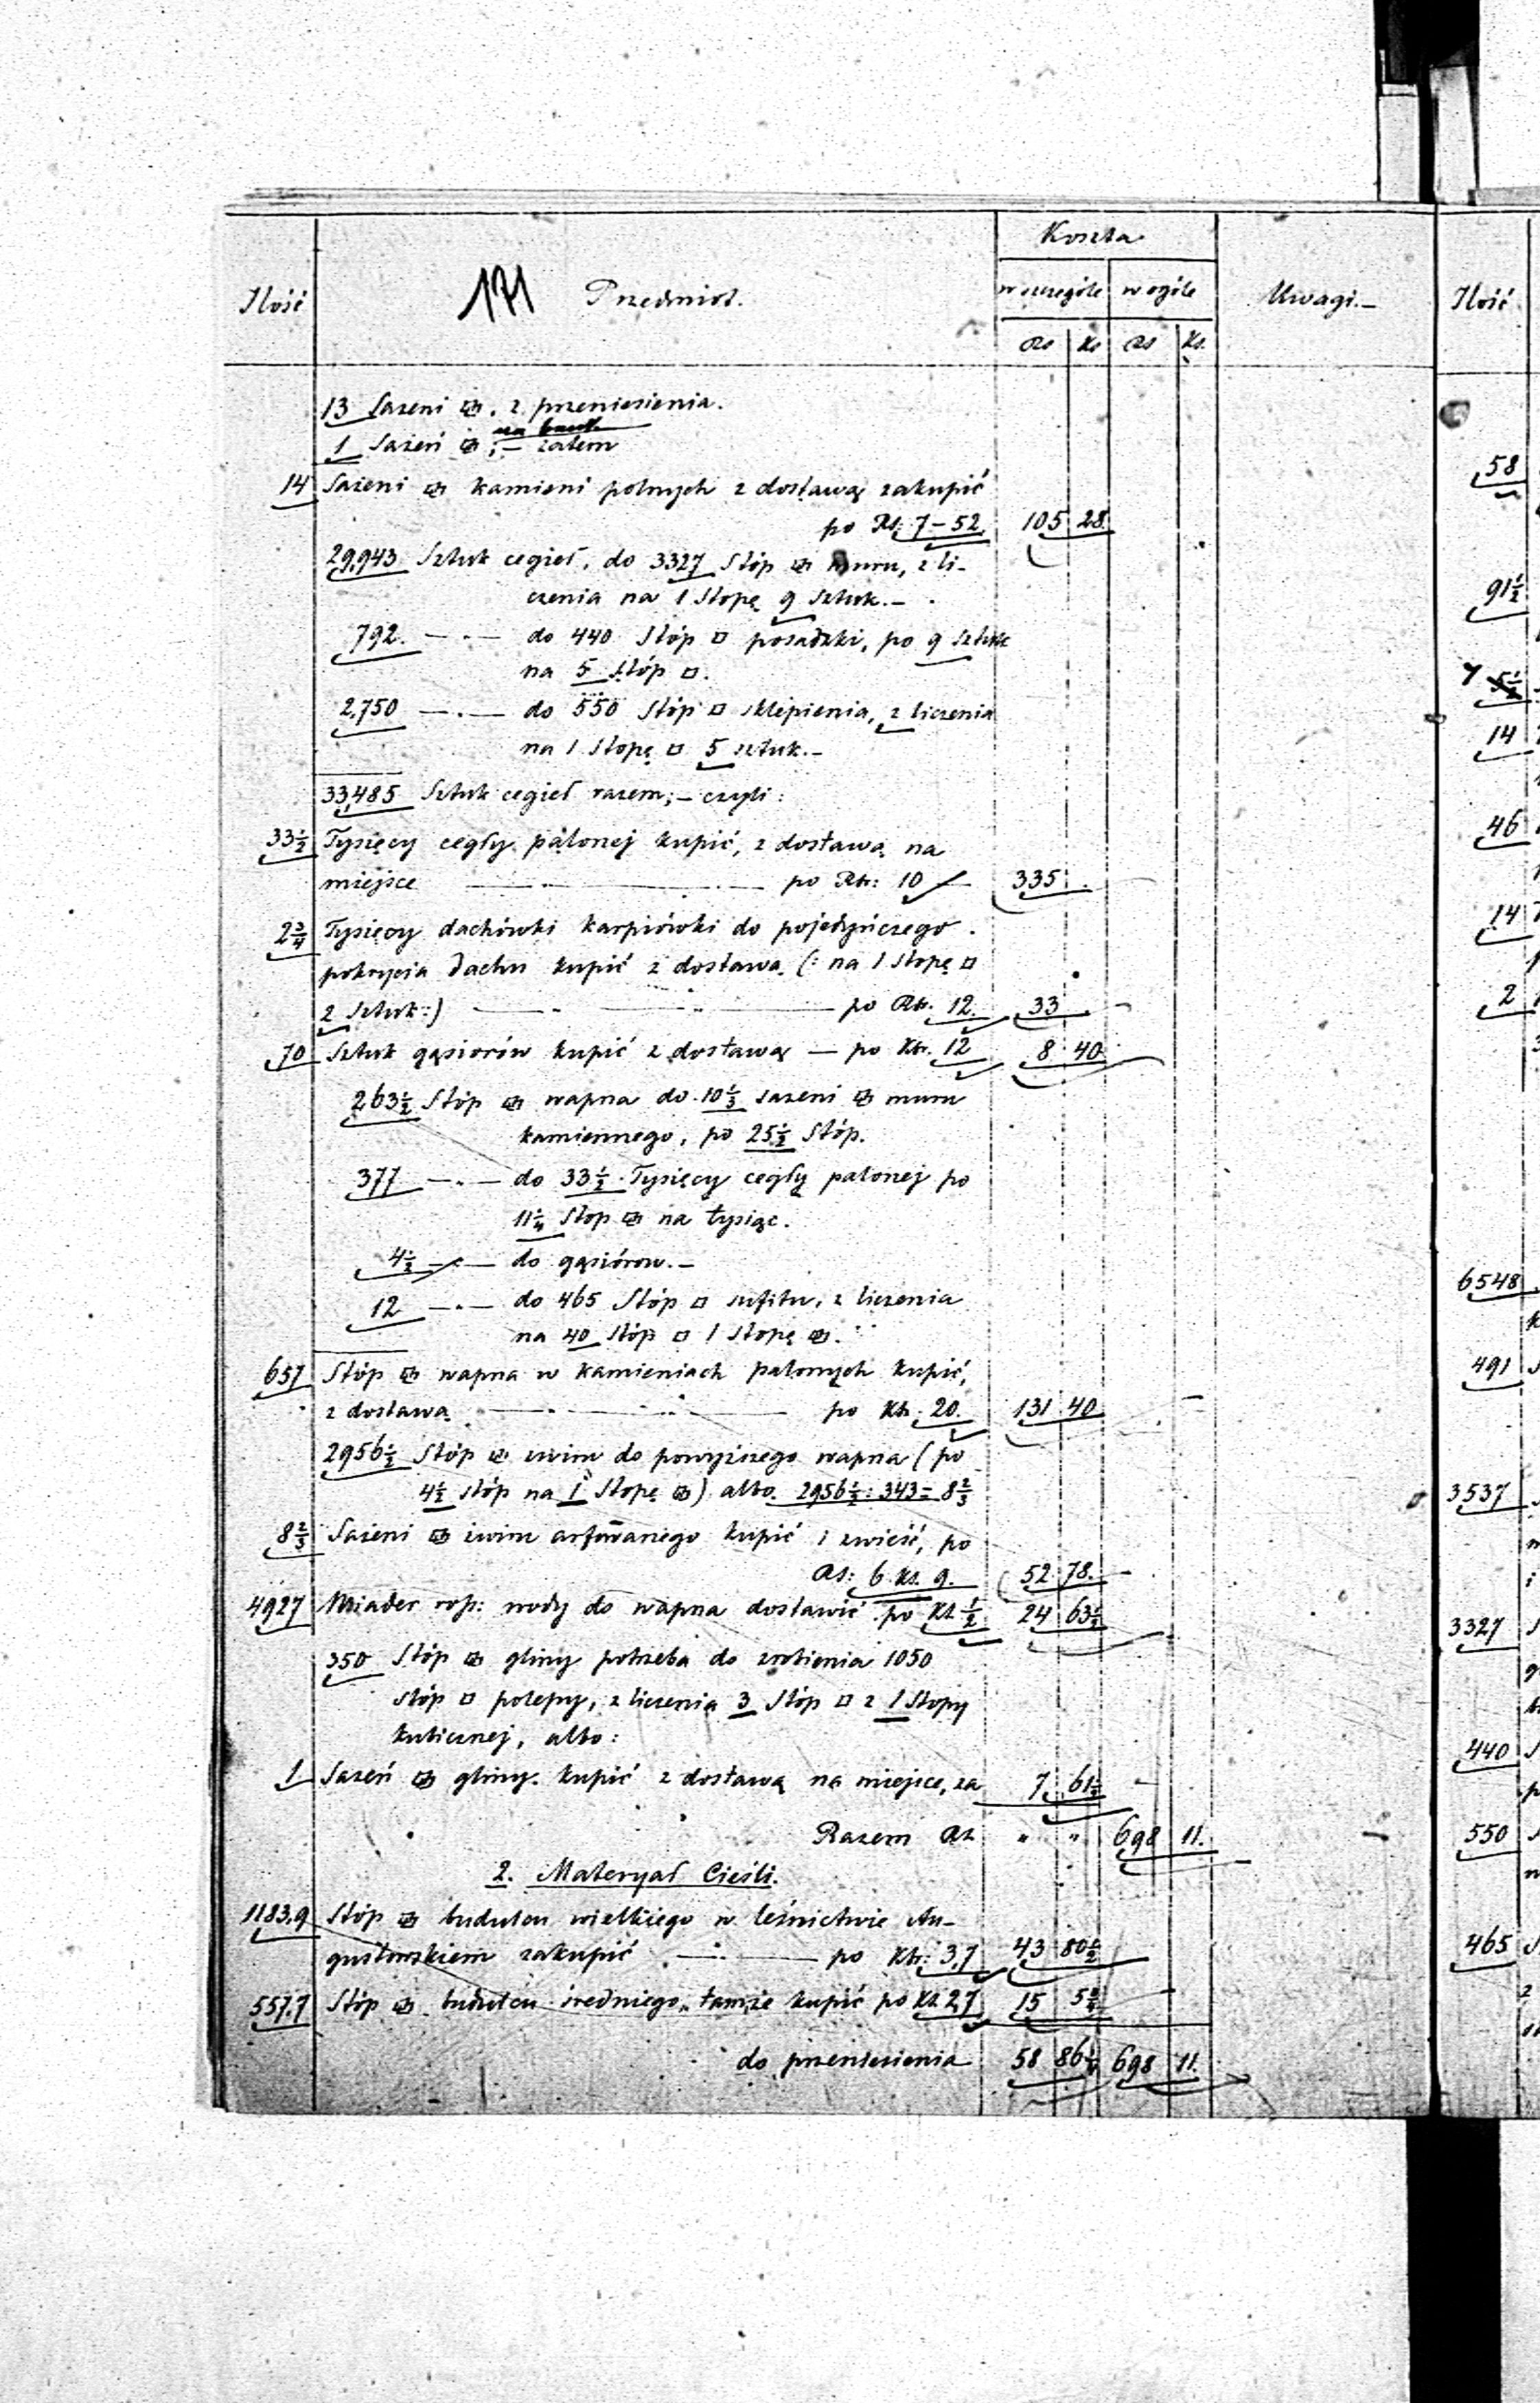 Koszta
Ilość 171 Przedmiot. w szczególe w ogóle Uwagi.–
Rs Ks Rs Ks.
13 Sążeni ⌗. z przeniesienia.
na bruk
1 Sążeń ⌗; – zatem
14 Sążeni ⌗ kamieni polnych z dostawą zakupić
po Rs. 7–52. 105 28.
29,943 Sztuk cegieł, do 3327 Stóp ⌗ muru, z li-
czenia na 1 Stopę 9 sztuk.–
792. –„– do 440 Stóp □ posadzki, po 9 sztuk
na 5 Stóp □.
2,750 –„– do 550 Stóp □ sklepienia, z liczenia
na 1 Stopę □ 5 sztuk.–
33,485 Sztuk cegieł razem; – czyli:
33½ Tysięcy cegły palonej kupić, z dostawą na
miejsce po Rs: 10 335 .
2¾ Tysięcy dachówki karpiówki do pojedyńczego
pokrycia dachu kupić z dostawą (: na 1 stopę □
2 Sztuk:) po Rs. 12. 33 .
70 Sztuk gąsiorów kupić z dostawą – po Ks. 12 8 40
263½ Stóp ⌗ wapna do 10⅓ sążeni ⌗ muru
kamiennego, po 25½ Stóp.
377 –„– do 33½ Tysięcy cegły palonej po
11¼ Stóp ⌗ na tysiąc.
4½ –„– do gąsiorów.–
12 –„– do 465 Stóp □ sufitu, z liczenia
na 40 Stóp □ 1 Stopę ⌗.
657 Stóp ⌗ wapna w kamieniach palonych kupić,
z dostawą po Ks. 20. 131 40
2956½ Stóp ⌗ żwiru do powyższego wapna (po
4½ stóp na 1 Stopę ⌗) albo. 2956½ : 343 = 8⅔
8⅔ Sążeni ⌗ żwiru arfowanego kupić i zwieść, po
Rs: 6 Ks. 9. 52 78.
4927 Wiader ros: wody do wapna dostawić po Ks ½ 24 63½
350 Stóp ⌗ gliny potrzeba do zrobienia 1050
stóp □ polepy, z liczenia 3 Stóp □ z 1 Stopy
kubicznej, albo:
1 Sążeń ⌗ gliny kupić z dostawą na miejsce, za 7 61½
Razem Rs „ „ 698 11.
2. Materyał Cieśli.
1183,9 Stóp ⌗ budulcu wielkiego w leśnictwie Au-
gustowskiem zakupić po Ks: 3,7 43 80½
557,7 Stóp ⌗ budulcu średniego, tamże kupić po Ks. 2,7 15 5¾
do przeniesienia 58 86¼ 698 11.
Ilość
58
91½
7
14
46
14
2
6548
491
3537
3327
440
550
465